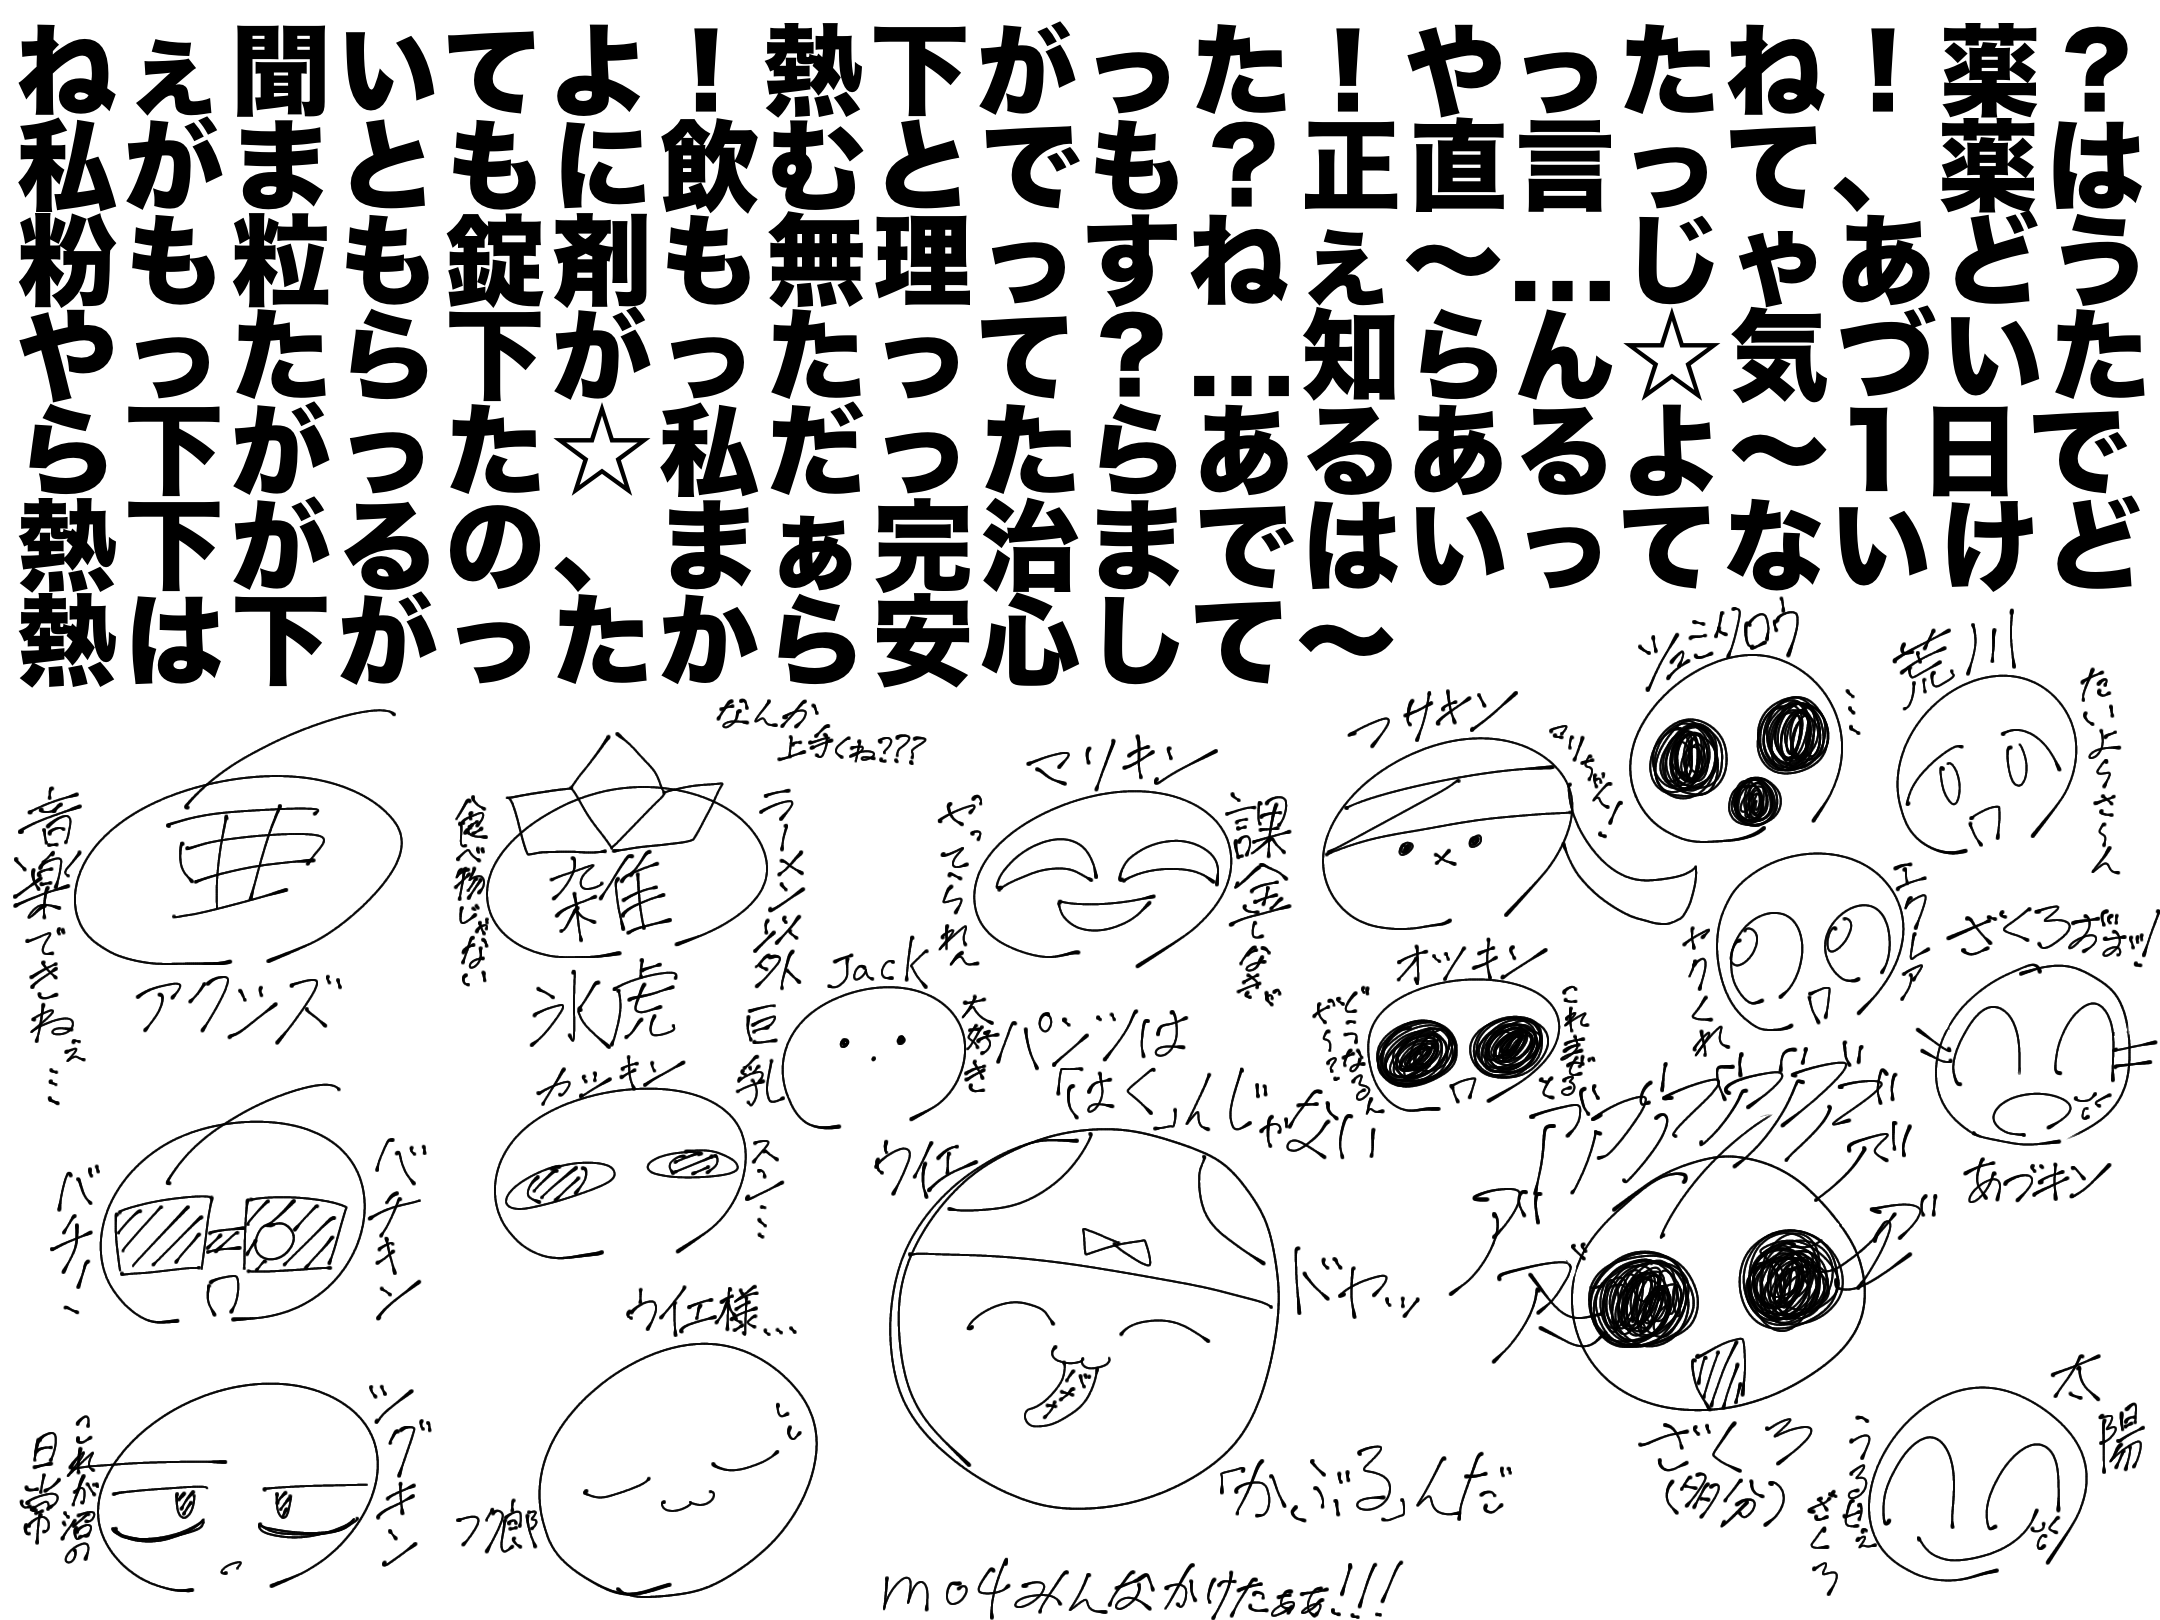 ねぇ聞いてよ！熱下がった！やったね！薬？
私がまともに飲むとでも？正直言って、薬は
粉も粒も錠剤も無理っすねぇ〜…じゃあどう
やったら下がったって？…知らん☆気づいた
ら下がった☆私だったらあるあるよ〜1日で
熱下がるの、まぁ完治まではいってないけど
熱は下がったから安心して〜
音楽できねぇ…
亜
アクシズ
なんか
上手くね???
ラーメン以外
食べ物じゃない
雑
氷虎
マリキン
課金しなきゃ
やってられん
フサキン
マリちゃん!
ジュミドロウ
…
荒川
たいようさ〜ん
エクレア
ヤクくれ
ざくろおぉ!
あづキン
Jack
巨乳
大好き
オツキン
これ混ぜると
どうなるん
やろ〜?
バチキン
バチバチ
ガシキン
スン…
パンツは
「はく」んじゃない
ウイエ
ドヤッ
「かぶる」んだ
ウイエ様…
フク郎
ツグキン
これが沼の
日常
ざくろ
(多分)
太陽
うるせぇ
ざくろ
mo4みんなかけたぁぁ!!!